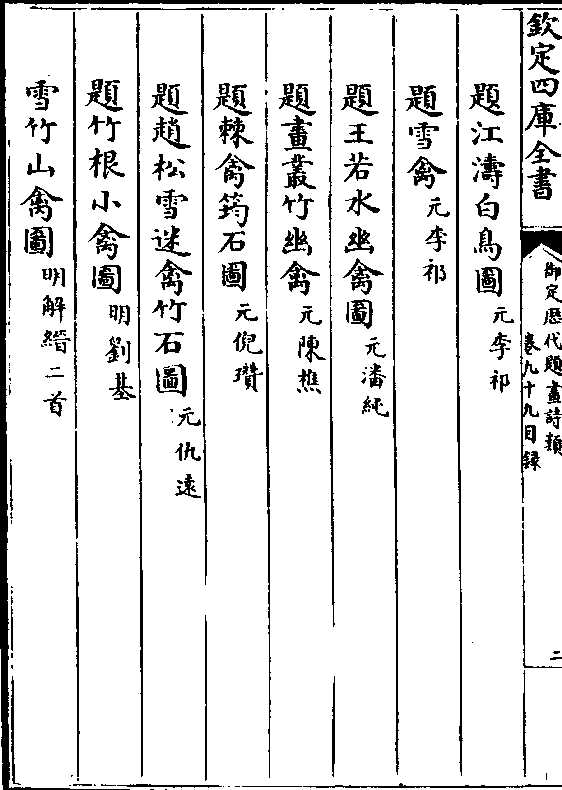 欽定四庫全書
御定歷代題畫詩類
卷九十九目錄
二
題江濤白鳥圖 元李祁
題雪禽 元李祁
題王若水幽禽圖 元潘純
題畫叢竹幽禽 元陳樵
題棘禽筠石圖 元倪瓚
題趙松雪迷禽竹石圖 元仇遠
題竹根小禽圖 明劉基
雪竹山禽圖 明解縉二首